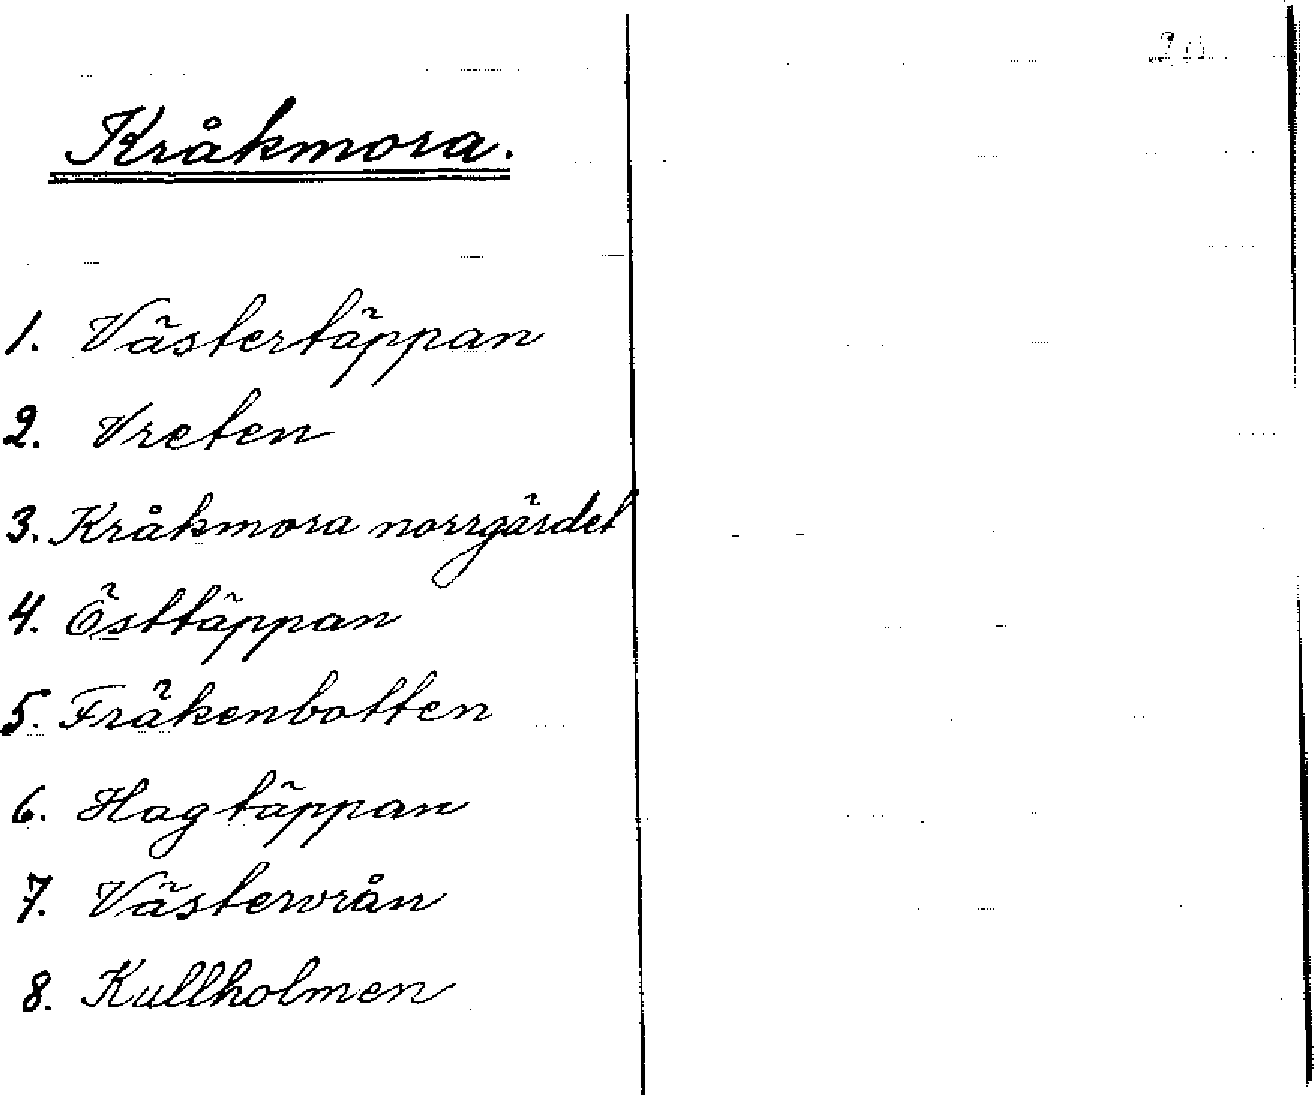 Kråkmora.
1. Västertäppan
2. Vreten
3. Kråkmora norrgärdet
4. Östtäppan
5. Fräkenbotten
6. Hagtäppan
7. Västervrån
8. Kullholmen